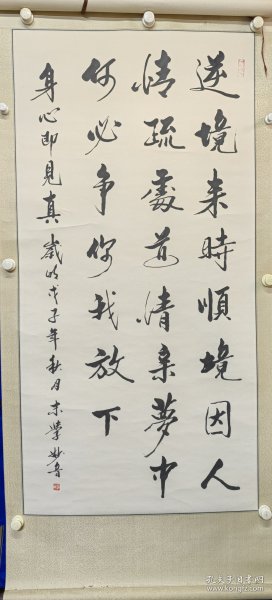 逆境来時順境因人
情疏處道情亲夢中
何必争你我放下
身心即見真 歲次戊子年秋月 末學妙音
孔夫子旧书网